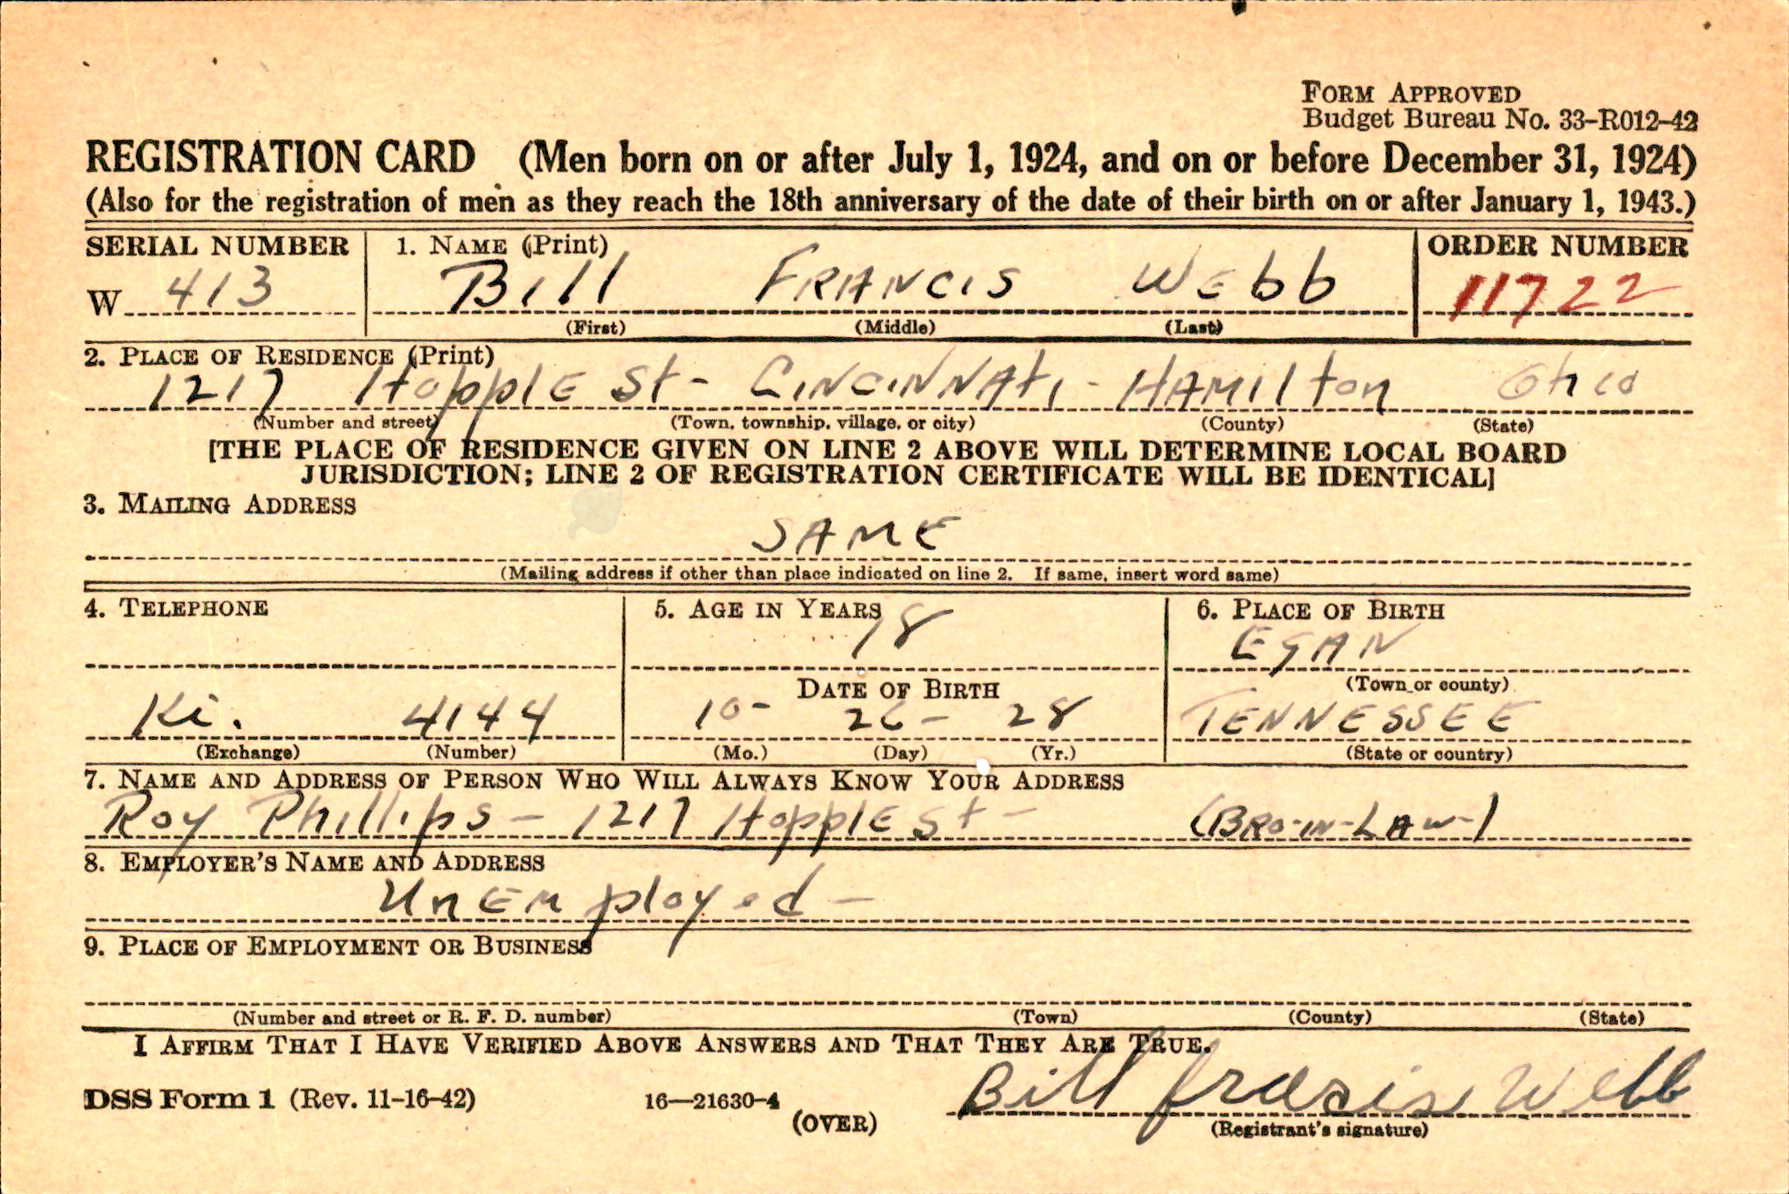 FORM APPROVED
Budget Bureau No. 33-R012-42
REGISTRATION CARD (Men born on or after July 1, 1924, and on or before December 31, 1924)
(Also for the registration of men as they reach the 18th anniversary of the date of their birth on or after January 1, 1943.)
SERIAL NUMBER 1. NAME (Print) ORDER NUMBER
W 413 Bill FRANCIS WEbb 11722
(First) (Middle) (Last)
2. PLACE OF RESIDENCE (Print)
1217 HopplE St- CINCINNAti - HAMIlton Ohio
(Number and street) (Town, township, village, or city) (County) (State)
[THE PLACE OF RESIDENCE GIVEN ON LINE 2 ABOVE WILL DETERMINE LOCAL BOARD
JURISDICTION; LINE 2 OF REGISTRATION CERTIFICATE WILL BE IDENTICAL]
3. MAILING ADDRESS
SAME
(Mailing address if other than place indicated on line 2. If same, insert word same)
4. TELEPHONE 5. AGE IN YEARS 6. PLACE OF BIRTH
18 EGAN
DATE OF BIRTH (Town or county)
Ki. 4144 10- 26- 28 TENNESSEE
(Exchange) (Number) (Mo.) (Day) (Yr.) (State or country)
7. NAME AND ADDRESS OF PERSON WHO WILL ALWAYS KNOW YOUR ADDRESS
Roy Phillips - 1217 HopplE St - (BRO-IN-LAW-)
8. EMPLOYER'S NAME AND ADDRESS
UnEmployed -
9. PLACE OF EMPLOYMENT OR BUSINESS
(Number and street or R. F. D. number) (Town) (County) (State)
I AFFIRM THAT I HAVE VERIFIED ABOVE ANSWERS AND THAT THEY ARE TRUE.
DSS Form 1 (Rev. 11-16-42) 16—21630-4 (OVER) Bill francis Webb
(Registrant's signature)